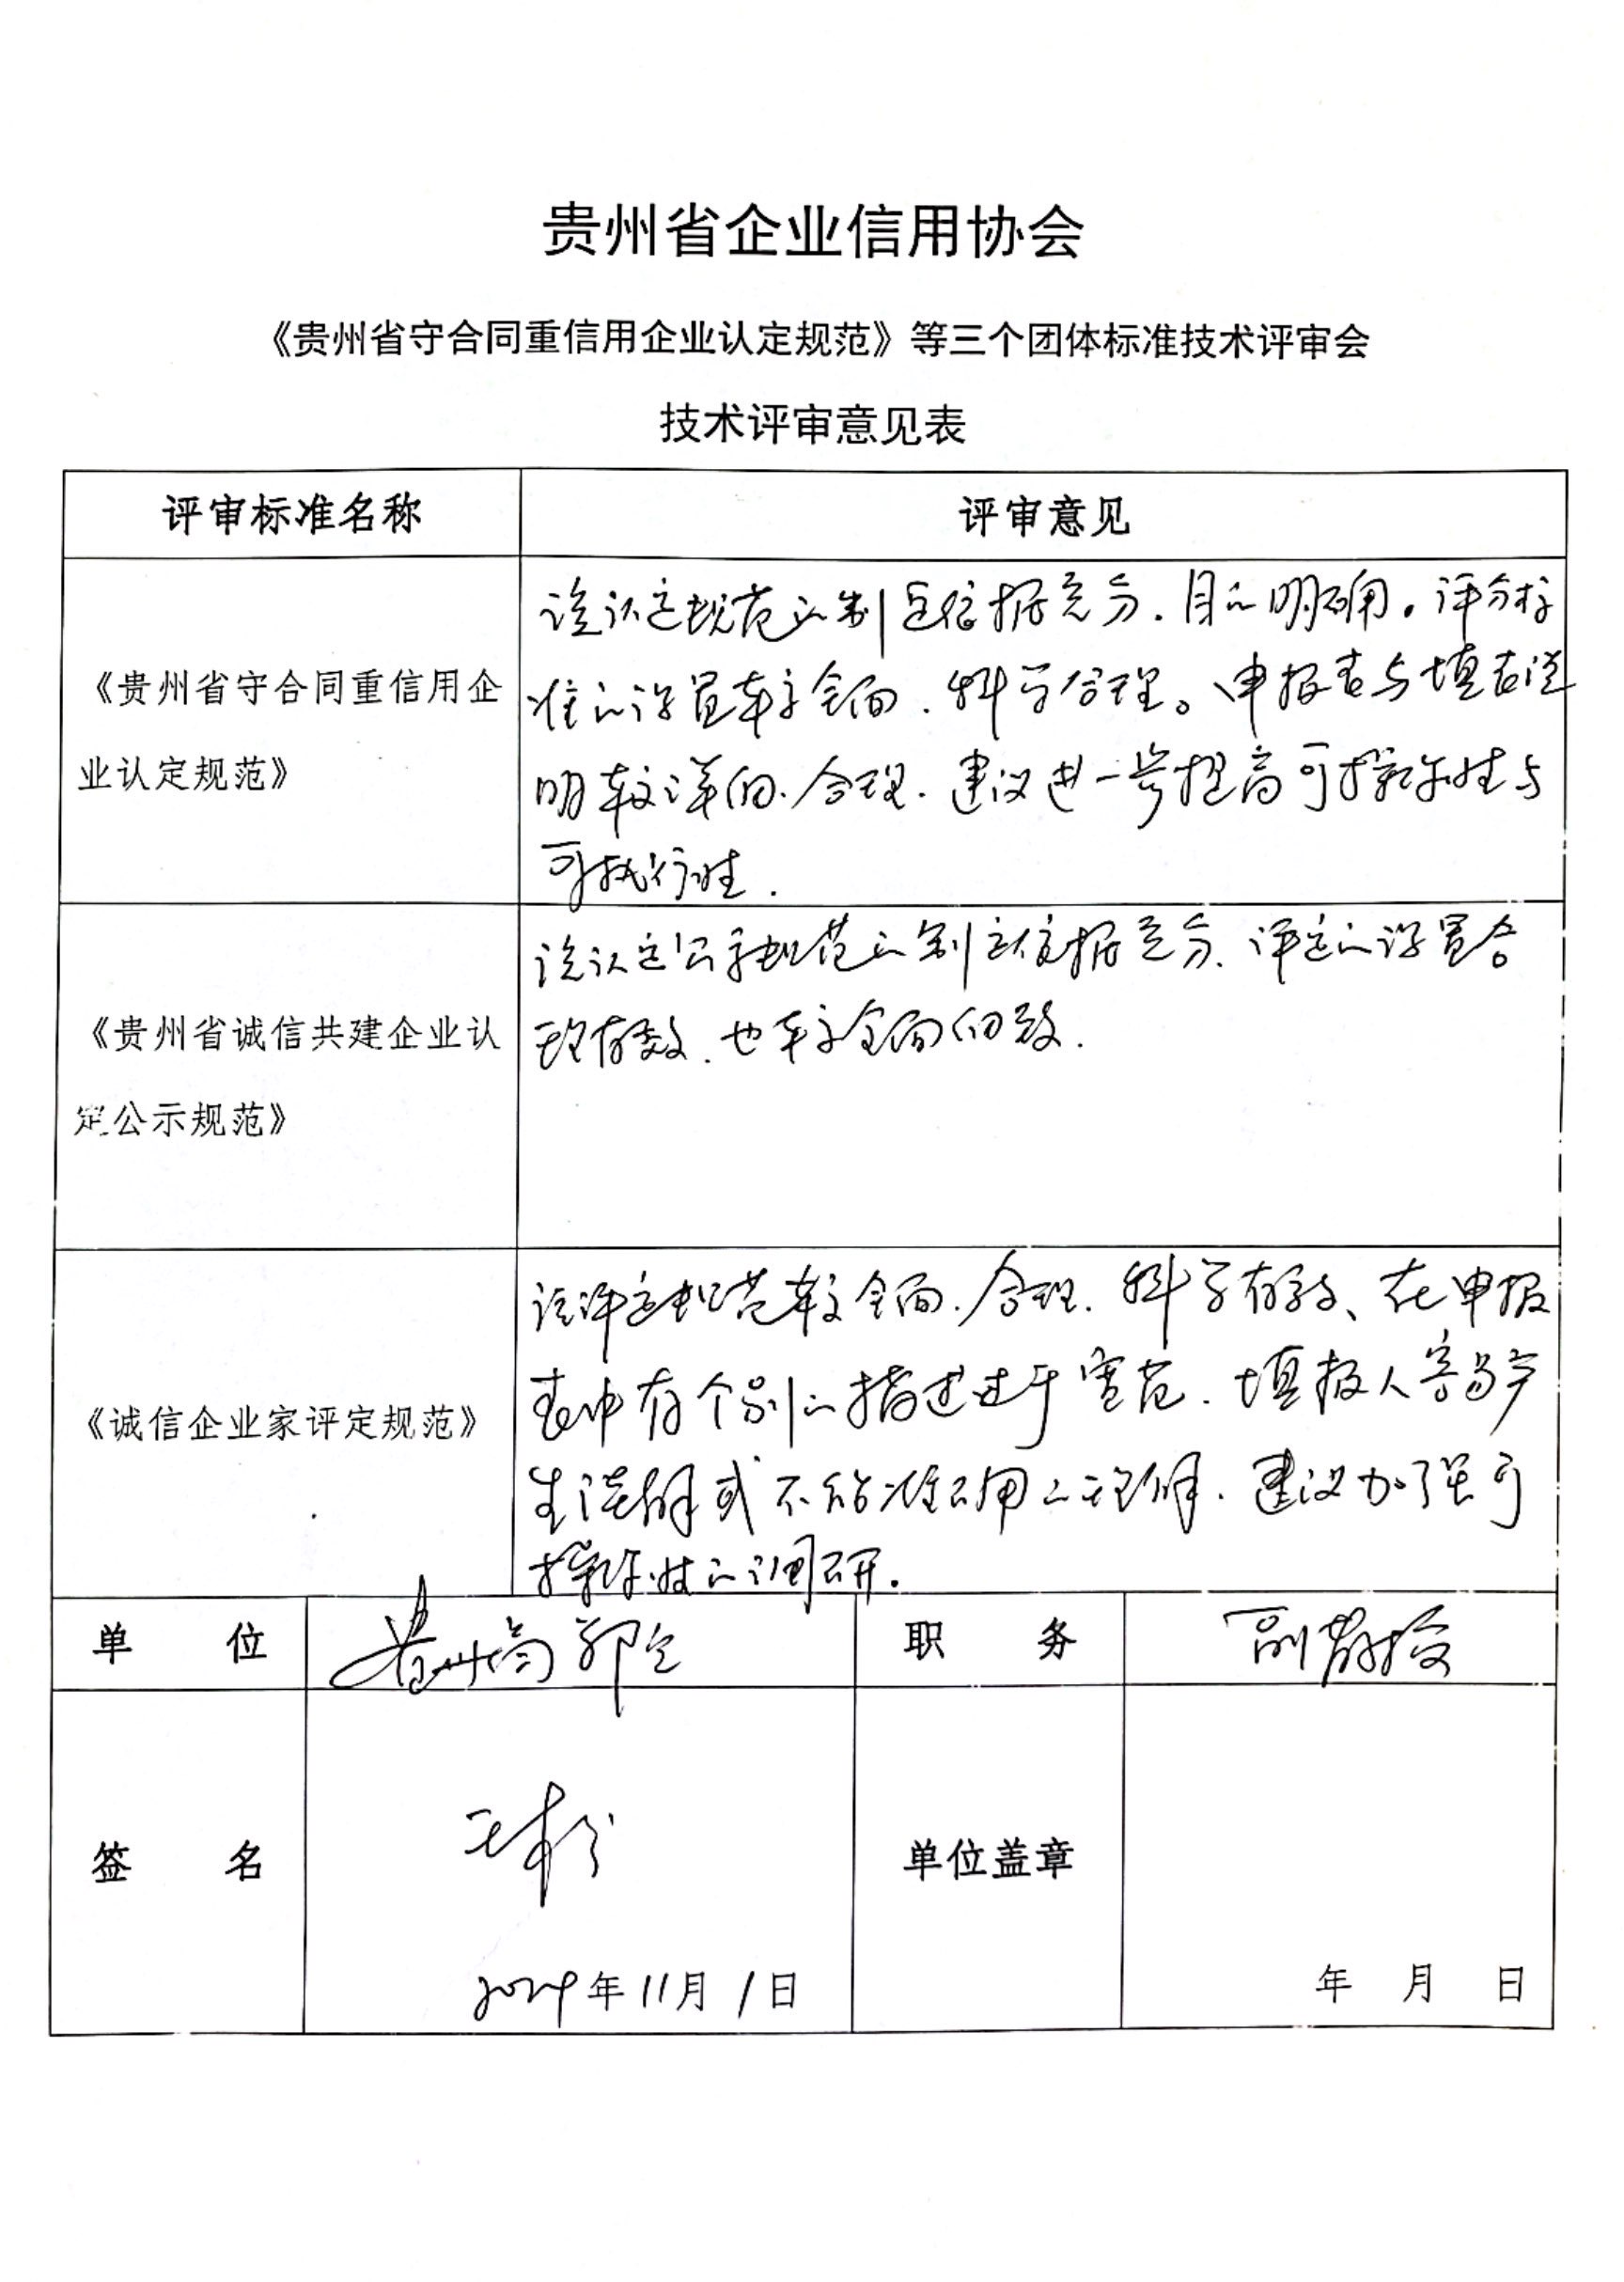 贵州省企业信用协会
《贵州省守合同重信用企业认定规范》等三个团体标准技术评审会
技术评审意见表
评审标准名称
评审意见
《贵州省守合同重信用企
业认定规范》
该认定规范的制定依据充分.目的明确。评分标
准的设置较全面.科学合理。申报表与填表说
明较详细.合理.建议进一步提高可操作性与
可执行性.
《贵州省诚信共建企业认
定公示规范》
该认定公示规范的制定依据充分.评定的设置合
理有效.也较全面细致.
《诚信企业家评定规范》
该评定规范较全面.合理.科学有效、在申报
表中有个别的描述过于宽范.填报人容易产
生误解或不能准确的理解.建议加强可
操作性的调研.
单 位
贵州商
职 务
副教授
签 名
2024年11月1日
单位盖章
年 月 日